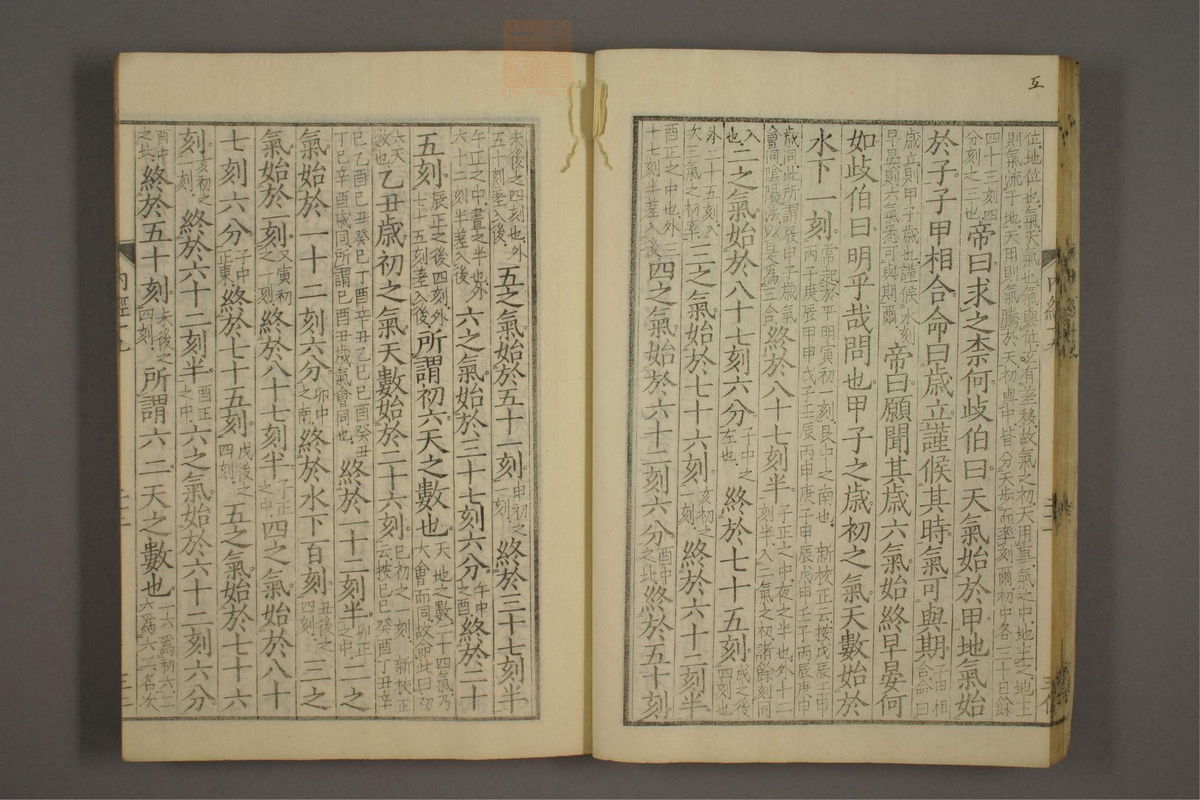 位地位也氣天氣也氣與位互有差移故氣之初天用事氣之中地主之地主
則氣流于地天用則氣騰於天初與中皆分天步而率刻爾初中各三十日餘
四十三刻四
分刻之三也
帝曰求之柰何歧伯曰天氣始於甲地氣始
於子子甲相合命曰歲立謹候其時氣可與期
子甲相
合命曰
歲立則甲子歲也謹候水刻
早晏則六氣悉可與期爾
帝曰願聞其歲六氣始終早晏何
如歧伯曰明乎哉問也甲子之歲初之氣天數始於
水下一刻
常起於平明寅初一刻艮中之南也 新校正云按戊辰壬申
丙子庚辰甲申戊子壬辰丙申庚子甲辰戊申壬子丙辰庚申
歲同此所謂辰申子歲氣
會同陰陽法以是爲三合
終於八十七刻半
子正之中夜之半也外十二
刻半入二氣之初諸餘刻同
入
也
二之氣始於八十七刻六分
子中之
左也
終於七十五刻
戌之後
四刻也
外二十五刻入
次三氣之初率
三之氣始於七十六刻
亥初之
一刻
終於六十二刻半
酉正之中也外三
十七刻半差入後
四之氣始於六十二刻六分
酉中
之北
終於五十刻
未後之四刻也外
五十刻差入後
五之氣始於五十一刻
申初之
一刻
終於三十七刻半
午正之中晝之半也外
六十二刻半差入後
六之氣始於三十七刻六分
午中
之酉
終於二十
五刻
辰正之後四刻外
七十五刻差入後
所謂初六天之數也
天地之數二十四氣乃
大會而同故命此曰初
六天
數也
乙丑歲初之氣天數始於二十六刻
巳初之一刻 新校正
云按己巳癸酉丁丑辛
巳乙酉己丑癸巳丁酉辛丑乙巳己酉癸丑
丁巳辛酉歲同所謂巳酉丑歲氣會同也
終於一十二刻半
卯正
之中
二之
氣始於一十二刻六分
卯中
之南
終於水下百刻
丑後之
四刻
三之
氣始於一刻
又寅初
之一刻
終於八十七刻半
子正
之中
四之氣始於八十
七刻六分
子中
正東
終於七十五刻
戌後之
四刻
五之氣始於七十六
刻
亥初之
一刻
終於六十二刻半
酉正
之中
六之氣始於六十二刻六分
酉中
之北
終於五十刻
未後之
四刻
所謂六二天之數也
一六爲初六二
六爲六二名次